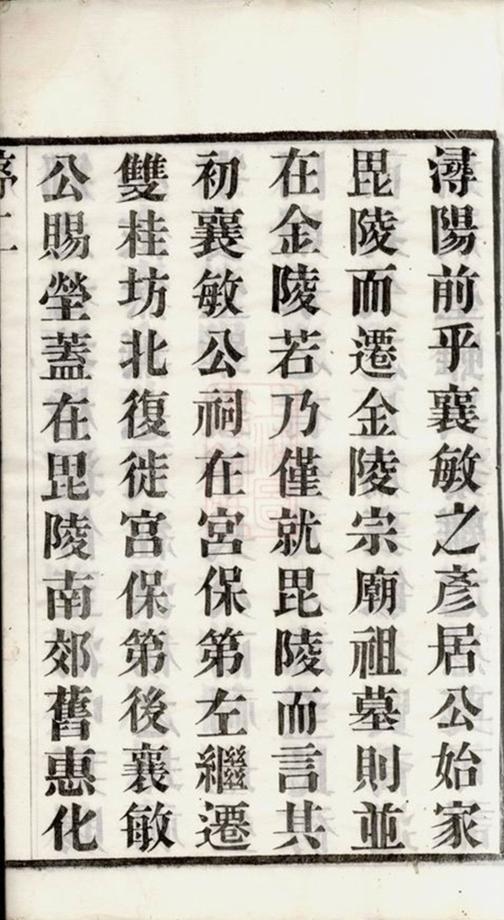 潯陽前乎襄敏之彥居公始家
毘陵而遷金陵宗廟祖墓則並
在金陵若乃僅就毘陵而言其
初襄敏公祠在宮保第左繼遷
雙桂坊北復徙宮保第後襄敏
公賜塋蓋在毘陵南郊舊惠化